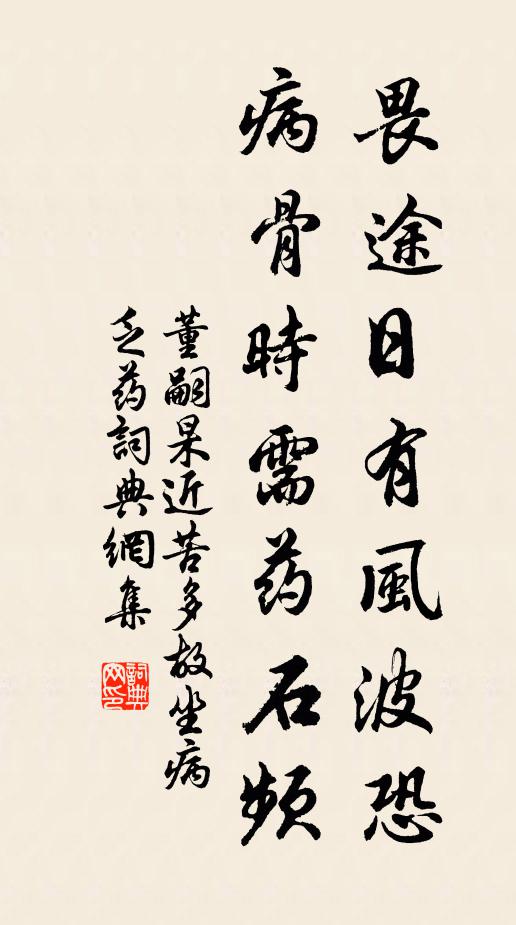 畏途日有風波恐
病骨時需药石頻
董嗣杲近苦多故坐病
乏药詞典網集
詞典网印